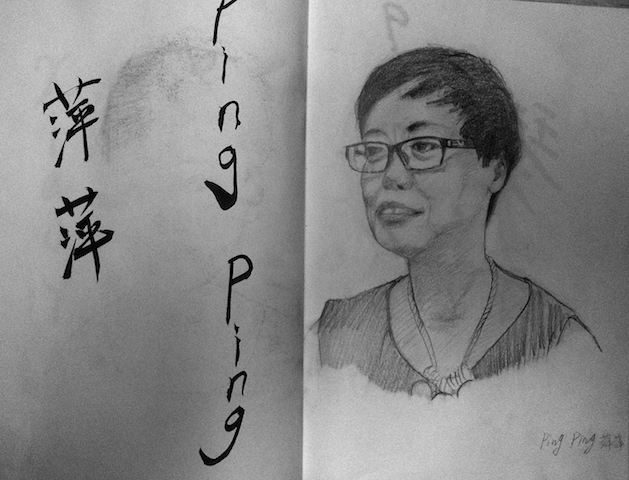 萍
萍
Ping Ping
Ping Ping 萍萍